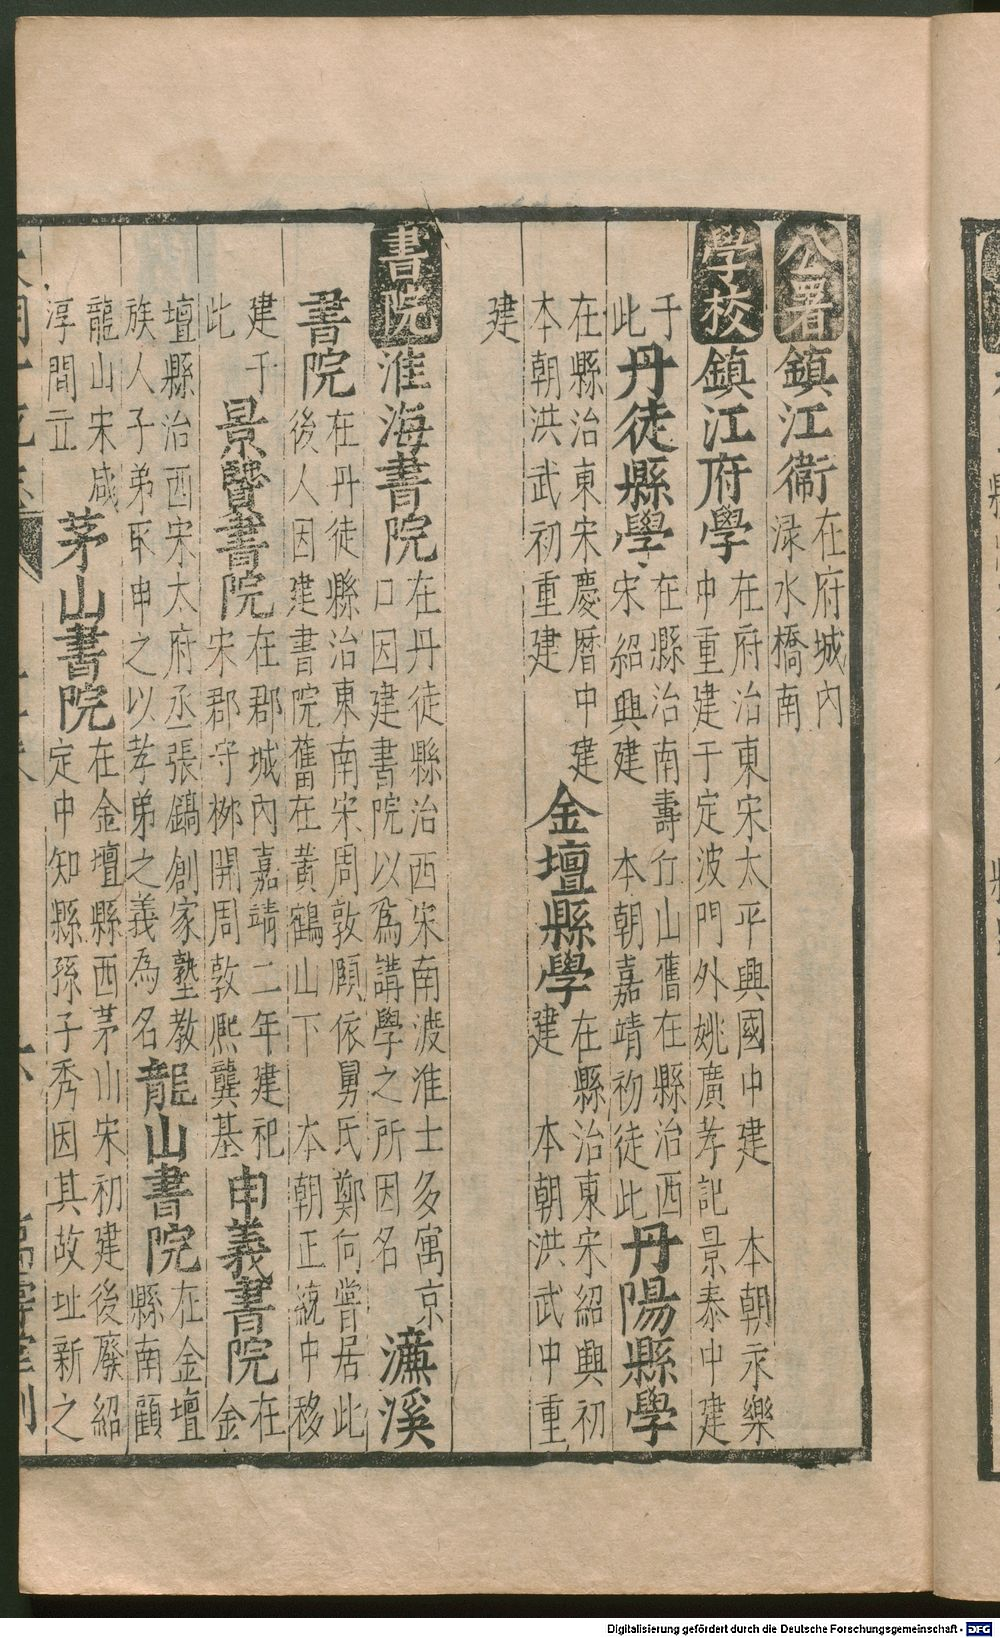 公署鎮江衞在府城內
淥水橋南
學校鎮江府學在府治東宋太平興國中建　本朝永樂
中重建于定波門外姚廣孝記景泰中建
于
此丹徒縣學在縣治南壽行山舊在縣治西
宋紹興建　本朝嘉靖初徒此丹陽縣學
在縣治東宋慶曆中建
本朝洪武初重建金壇縣學在縣治東宋紹興初
建　本朝洪武中重
建
書院淮海書院在丹徒縣治西宋南渡淮士多寓京
口因建書院以爲講學之所因名濂溪
書院在丹徒縣治東南宋周敦頤依舅氏鄭向嘗居此
後人因建書院舊在黃鶴山下　本朝正統中移
建于
此景賢書院在郡城內嘉靖二年建祀
宋郡守柳開周敦熈龔基申義書院在
金
壇縣治西宋太府丞張鎬創家塾教
族人子弟取申之以孝弟之義為名龍山書院在金壇
縣南顧
龍山宋咸
淳間立茅山書院在金壇縣西茅山宋初建後廢紹
定中知縣孫子秀因其故址新之
Digitalisierung gefördert durch die Deutsche Forschungsgemeinschaft - DFG